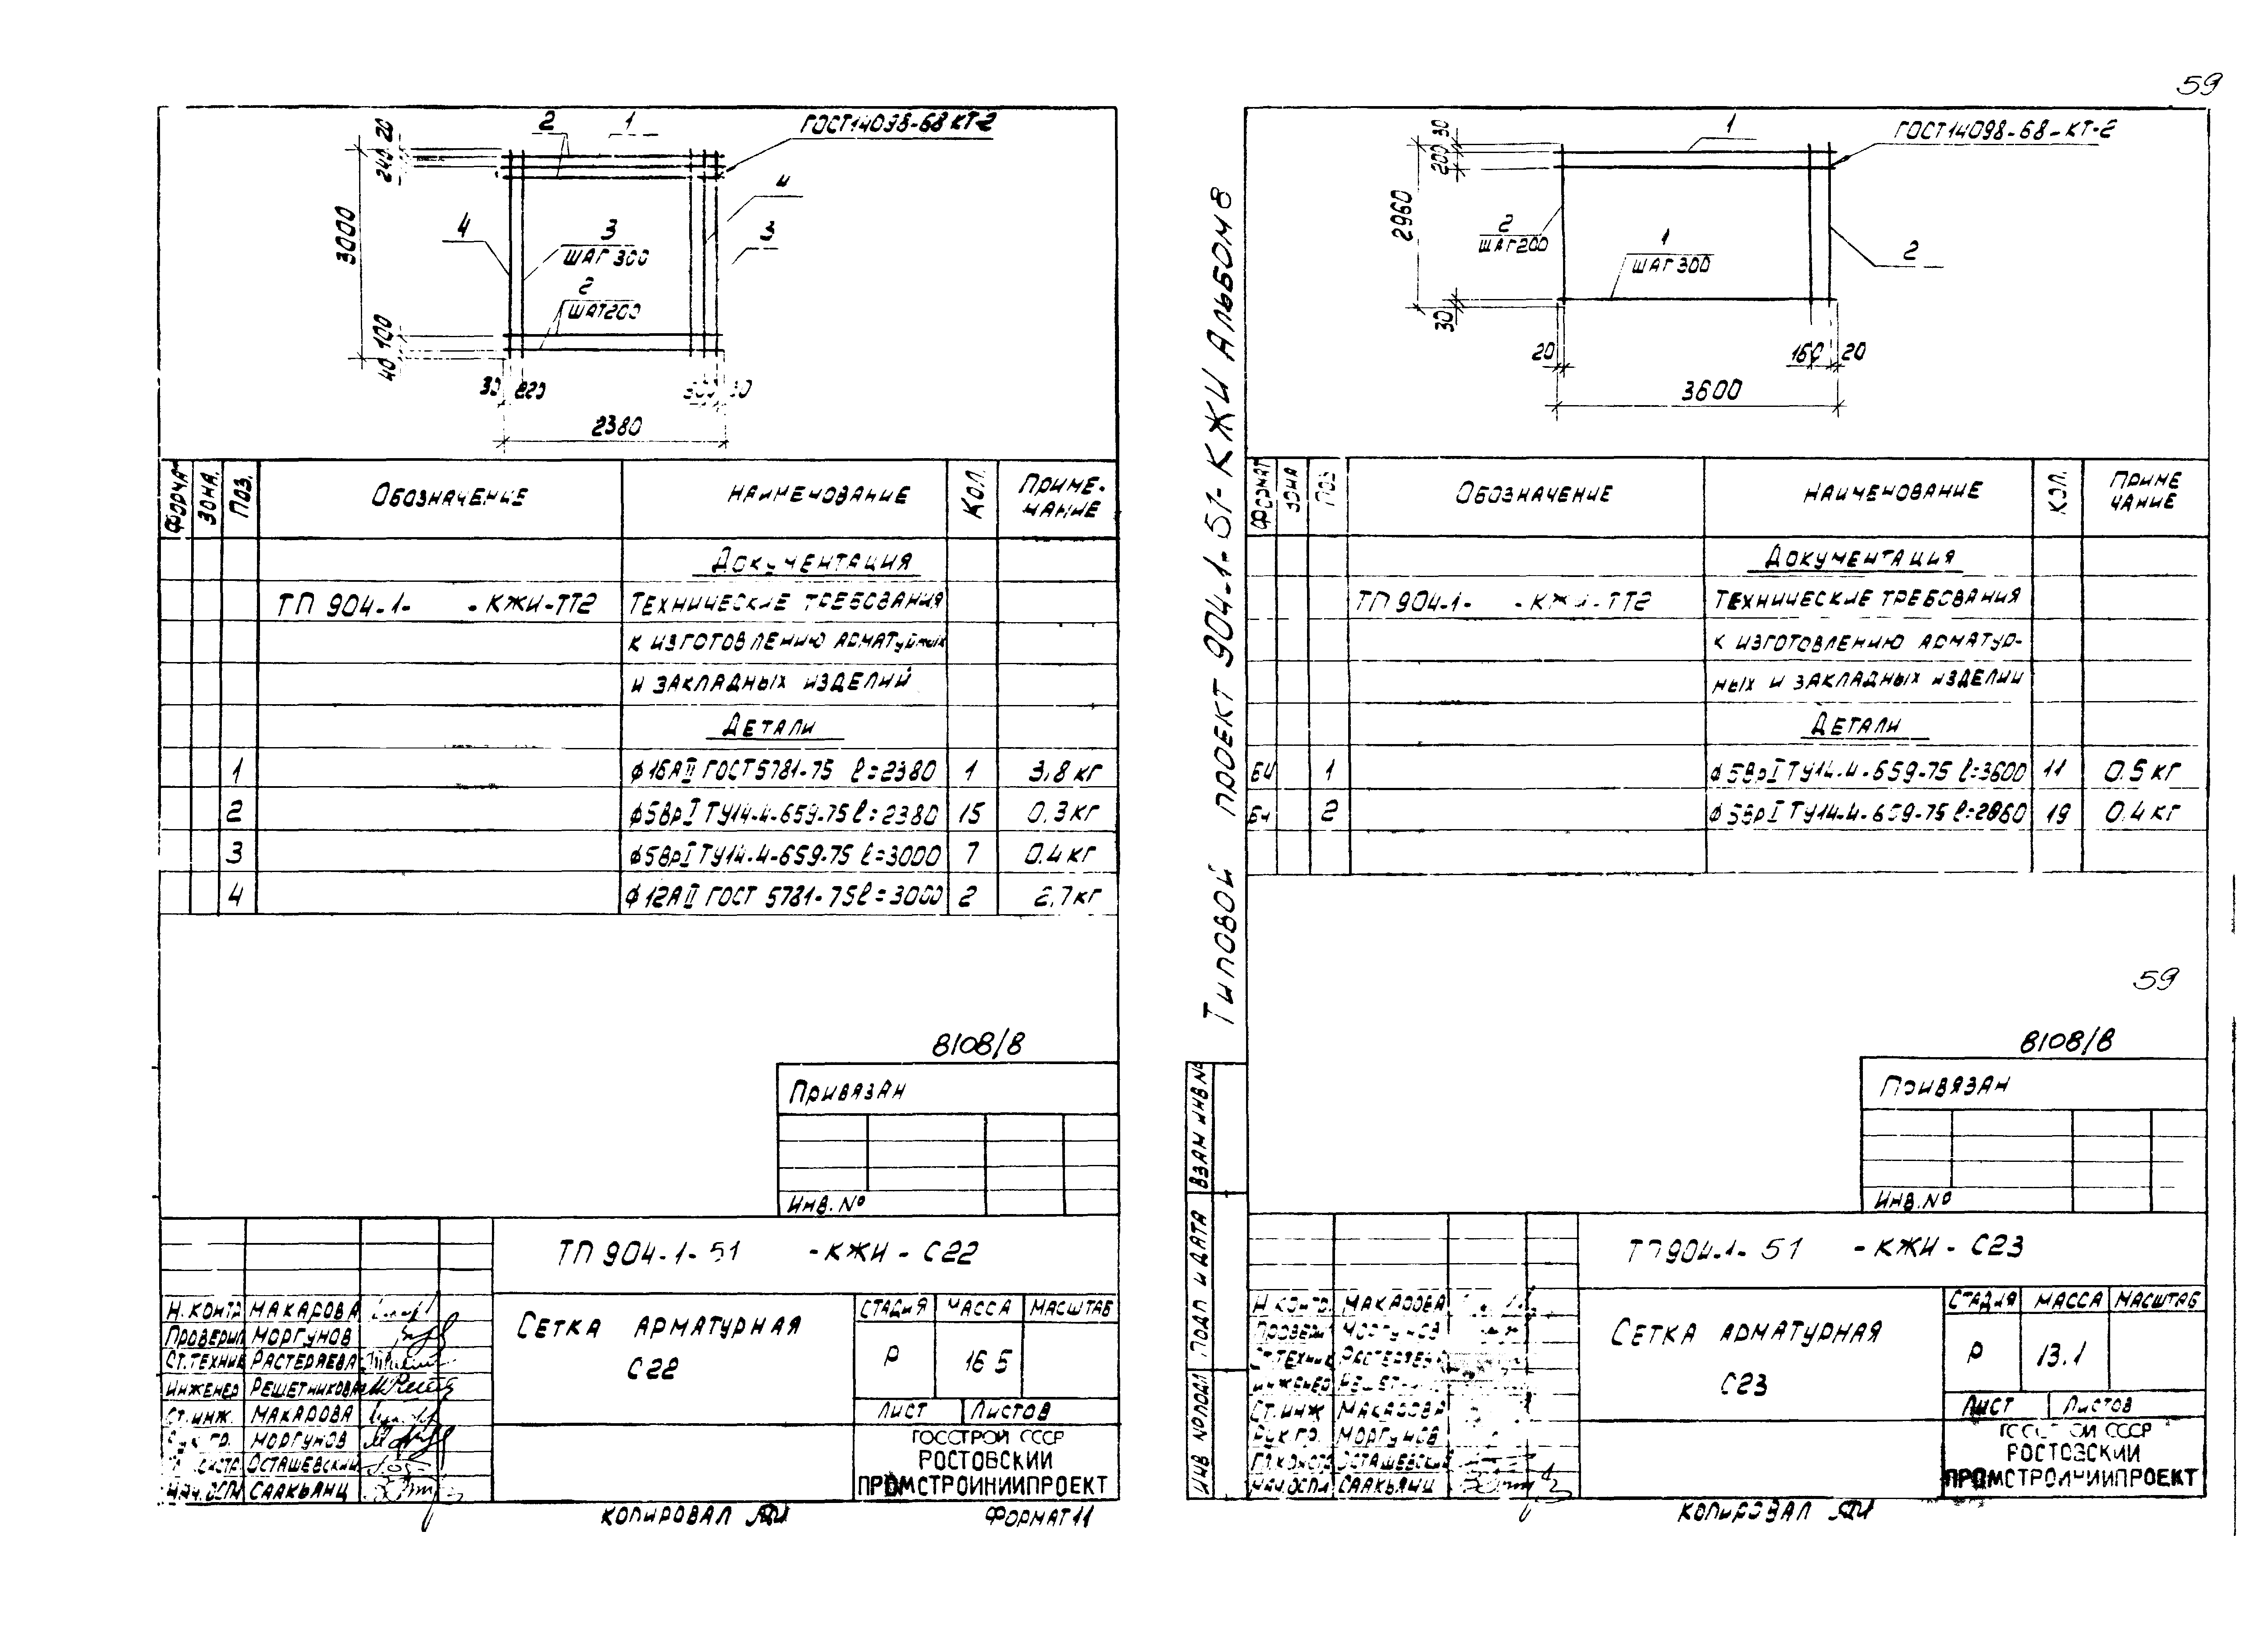 59
20
240
3000
100
40
2
1
ГОСТ14098-68 КТ-2
4
4
3
3
ШАГ 300
2
ШАГ200
30 220
300 30
2380
ФОРМАТ ЗОНА. ПОЗ. ОБОЗНАЧЕНИЕ НАИМЕНОВАНИЕ КОЛ. ПРИМЕ-
ЧАНИЕ
ДОКУМЕНТАЦИЯ
ТП 904-1- -КЖИ-ТТ2 ТЕХНИЧЕСКИЕ ТРЕБОВАНИЯ
К ИЗГОТОВЛЕНИЮ АРМАТУРНЫХ
И ЗАКЛАДНЫХ ИЗДЕЛИЙ
ДЕТАЛИ
1 ф16АII ГОСТ5781-75 ℓ=2380 1 3,8 кг
2 ф5ВрI ТУ14-4-659-75 ℓ=2380 15 0,3 кг
3 ф5ВрI ТУ14-4-659-75 ℓ=3000 7 0.4 кг
4 ф12АII ГОСТ 5781-75 ℓ=3000 2 2,7 кг
8108/8
ПРИВЯЗАН
ИНВ.№
ТП 904-1-51 -КЖИ - С22
Н.КОНТР МАКАРОВА
ПРОВЕРИЛ МОРГУНОВ
СТ.ТЕХНИК РАСТЕРЯЕВА
ИНЖЕНЕР РЕШЕТНИКОВА
СТ.ИНЖ. МАКАРОВА
РУК.ГР. МОРГУНОВ
ОСТАШЕВСКИЙ
НАЧ.ОСП СААКЬЯНЦ
СЕТКА АРМАТУРНАЯ
С22
СТАДИЯ МАССА МАСШТАБ
Р 16 5
ЛИСТ ЛИСТОВ
ГОССТРОЙ СССР
РОСТОВСКИЙ
ПРОМСТРОЙНИИПРОЕКТ
КОПИРОВАЛ
ФОРМАТ 11
ТИПОВОЙ ПРОЕКТ 904-1-51-КЖИ АЛЬБОМ 8
ВЗАМ ИНВ №
ПОДП И ДАТА
ИНВ №ПОДЛ
30
200
2960
30
1
ГОСТ14098-68-КТ-2
2
ШАГ200
1
ШАГ300
2
20
160 20
3600
ФОРМАТ ЗОНА ПОЗ ОБОЗНАЧЕНИЕ НАИМЕНОВАНИЕ КОЛ. ПРИМЕ
ЧАНИЕ
ДОКУМЕНТАЦИЯ
ТП 904-1- -КЖИ-ТТ2 ТЕХНИЧЕСКИЕ ТРЕБОВАНИЯ
К ИЗГОТОВЛЕНИЮ АРМАТУР-
НЫХ И ЗАКЛАДНЫХ ИЗДЕЛИЙ
ДЕТАЛИ
БЧ 1 ф5ВрI ТУ14-4-659-75 ℓ=3600 11 0.5 кг
БЧ 2 ф5ВрI ТУ14-4-659-75 ℓ=2960 19 0.4 кг
59
8108/8
ПРИВЯЗАН
ИНВ.№
ТП904-1-51 -КЖИ - С23
Н.КОНТР. МАКАРОВА
ПРОВЕРИЛ МОРГУНОВ
СТ.ТЕХНИК РАСТЕРЯЕВА
ИНЖЕНЕР
СТ.ИНЖ МАКАРОВА
РУК.ГР. МОРГУНОВ
ГЛ.КОНСТР ОСТАШЕВСКИЙ
НАЧ.ОСП СААКЬЯНЦ
СЕТКА АРМАТУРНАЯ
С23
СТАДИЯ МАССА МАСШТАБ
Р 13.1
ЛИСТ ЛИСТОВ
ГОССТРОЙ СССР
РОСТОВСКИЙ
ПРОМСТРОЙНИИПРОЕКТ
КОПИРОВАЛ